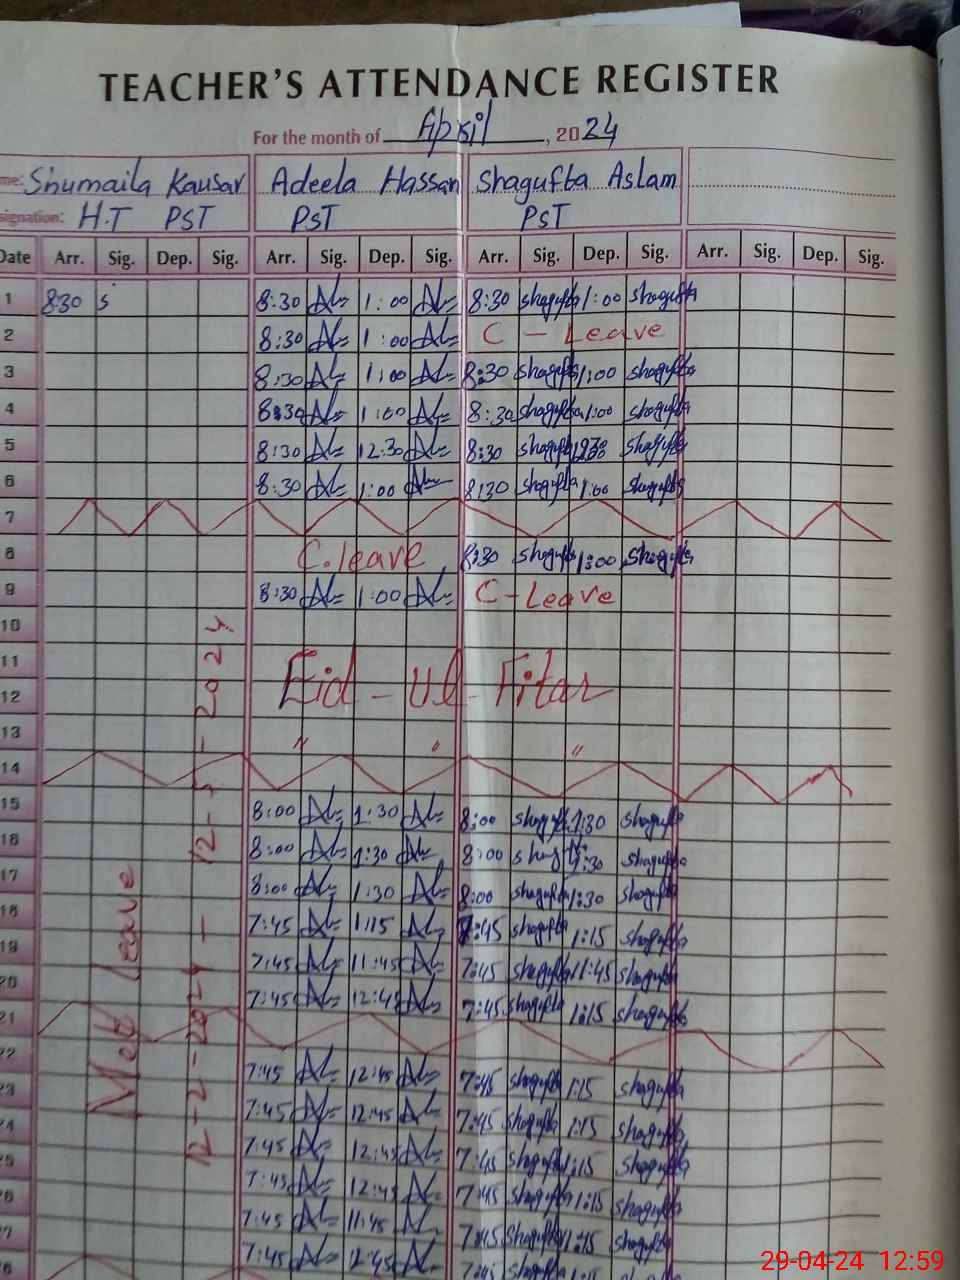 TEACHER'S ATTENDANCE REGISTER
For the month of April, 2024
me: Shumaila Kausar Adeela Hassan Shagufta Aslam
signation: H.T PST PST PST
Date Arr. Sig. Dep. Sig. Arr. Sig. Dep. Sig. Arr. Sig. Dep. Sig. Arr. Sig. Dep. Sig.
1 830 s 8:30 1:00 8:30 shagufta 1:00 shagufta
2 8:30 1:00 C - Leave
3 8:30 1:00 8:30 shagufta 1:00 shagufta
4 8:30 1:00 8:30 shagufta 1:00 shagufta
5 8:30 12:30 8:30 shagufta 1230 shagufta
6 8:30 1:00 8:30 shagufta 1:00 shagufta
7
8 C.leave 8:30 shagufta 1:00 shagufta
9 8:30 1:00 C - Leave
10
11
12 Eid - ul - Fitar
13
14 " " "
15 8:00 1:30 8:00 shagufta 1:30 shagufta
16 8:00 1:30 8:00 shagufta 1:30 shagufta
17 8:00 1:30 8:00 shagufta 1:30 shagufta
18 7:45 1:15 7:45 shagufta 1:15 shagufta
19 7:45 11:45 7:45 shagufta 11:45 shagufta
20 7:45 12:45 7:45 shagufta 1:15 shagufta
21
22 7:45 12:45 7:45 shagufta 1:15 shagufta
23 7:45 12:45 7:45 shagufta 1:15 shagufta
24 7:45 12:45 7:45 shagufta 1:15 shagufta
25 7:45 12:45 7:45 shagufta 1:15 shagufta
26 7:45 11:45 7:45 shagufta shagufta
27 7:45 12:45 7:45 shagufta 1:15 shagufta
28
Leave
12-2-2024 - 12-5-2024
29-04-24 12:59